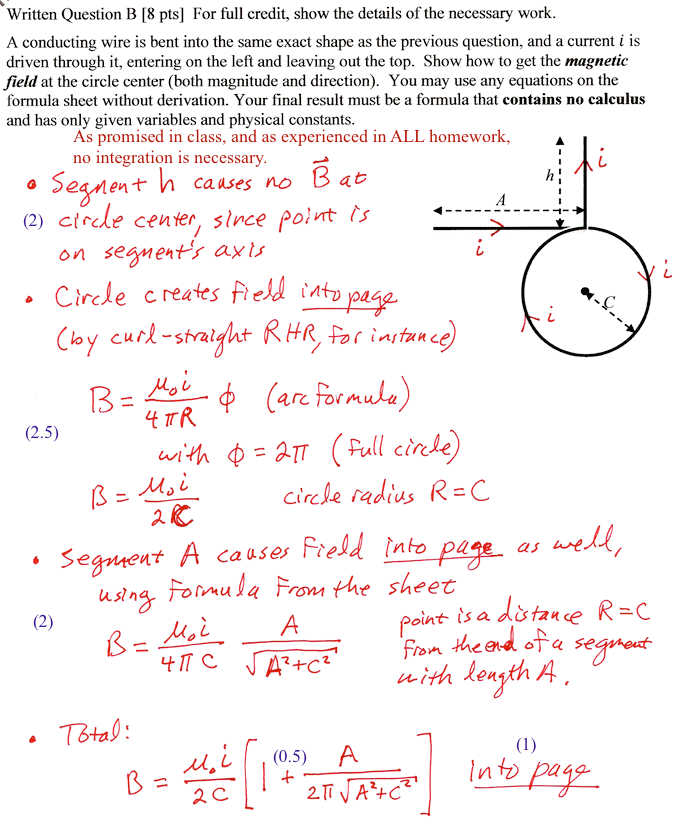 Written Question B [8 pts] For full credit, show the details of the necessary work.
A conducting wire is bent into the same exact shape as the previous question, and a current i is
driven through it, entering on the left and leaving out the top. Show how to get the magnetic
field at the circle center (both magnitude and direction). You may use any equations on the
formula sheet without derivation. Your final result must be a formula that contains no calculus
and has only given variables and physical constants.
As promised in class, and as experienced in ALL homework,
no integration is necessary.
• Segment h causes no B⃗ at
(2) circle center, since point is
on segment's axis
h
i
A
i
i
i
C
• Circle creates field into page
(by curl-straight RHR, for instance)
B = μ₀i / 4πR ϕ (arc formula)
(2.5)
with ϕ = 2π (full circle)
B = μ₀i / 2C circle radius R = C
• Segment A causes field into page as well,
using formula from the sheet
(2)
B = μ₀i / 4πC A / √A²+C²
point is a distance R=C
from the end of a segment
with length A.
• Total:
B = μ₀i / 2C [ 1 + A / 2π√A²+C² ] into page
(0.5)
(1)